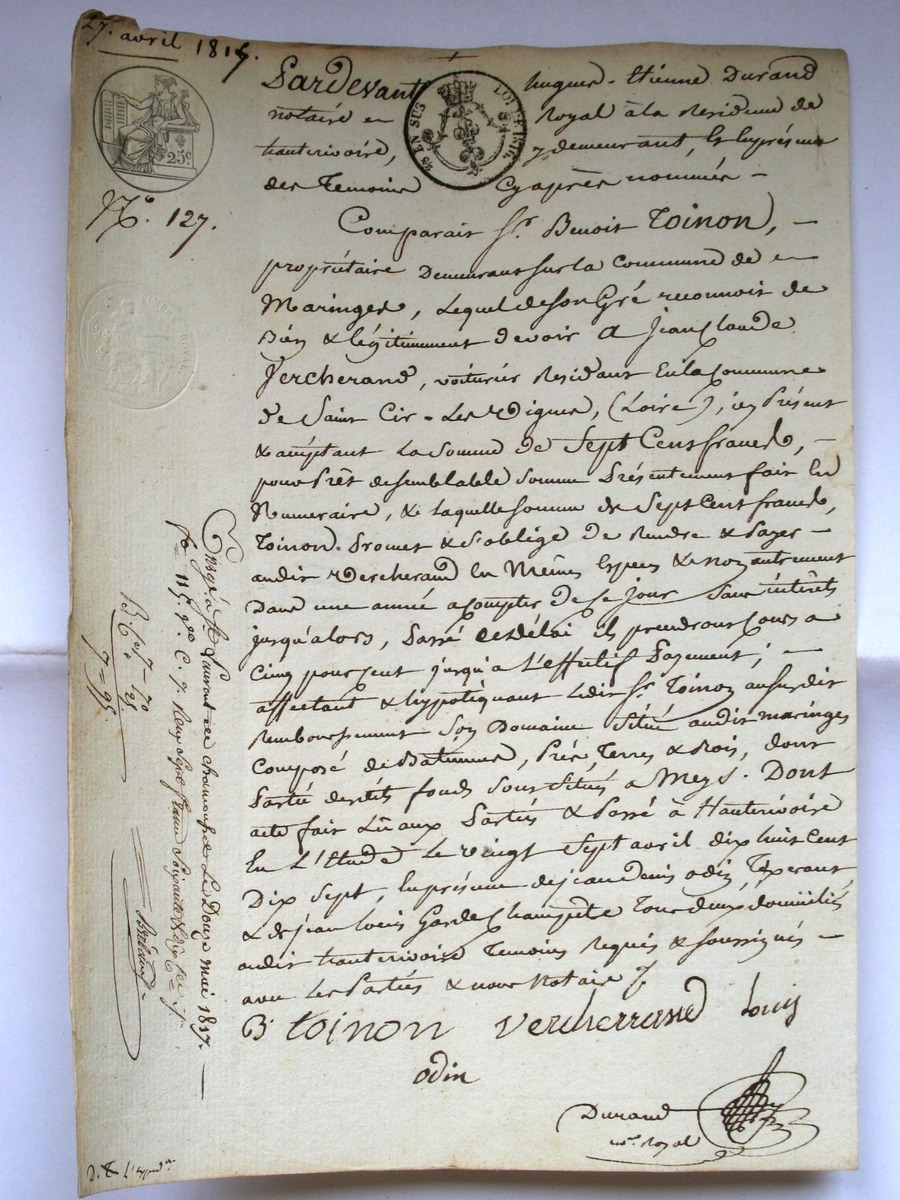 27. avril 1817.
25c
EN SUS
LOI DE 1816
N.o 127.
Pardevant hugues-Etienne Durand
notaire Royal à la Residence de
hauterivoire, y demeurant, & En présence
des Temoins Cyaprès nommés -
Comparait Sr. Benoit Toinon, -
propriétaire Demeurant sur la Commune de
Maringes, Lequel de Son Gré reconnoit de
Bien & légitimement devoir a Jean Claude
Vercherand, voiturier Residant En la Commune
de Saint Cir-Les Vignes, (Loire), ici Présent
& acceptant La Somme de Sept Cent francs, -
pour Prêt de semblable Somme Présentement fait En
Numeraire, & laquelle Somme de Sept Cent francs,
Toinon. Promet & S'oblige De Rendre & Payer -
audit Vercherand En Mêmes Especes & Non autrement
Dans une année a Compter de Ce Jour Sans intérêts
jusqu'alors, Passé Ces délai ils prendront Cours a
Cinq pour Cent jusqu'a l'Effectif Payement; -
affectant & hypotéquant Ledit Sr. Toinon au Susdit
Remboursement Son Domaine Situé audit maringes
Composé de Batiments, Prés, Terres & Bois, dont
Partie desdits fonds Sont Situés a Meys. Dont
acte fait Lu aux Parties & Passé à Hauterivoire
En L'Etude Le vingt Sept avril dix huit Cent
Dix Sept, En présence de jean Denis odin, Tixerant
& de jean Louis Garde Champêtre Tous deux domiciliés
audit hauterivoire Temoins Requis & Soussignés -
avec Les Parties & nous Notaire
B Toinon vercherrand Louis
odin
Durand
nre. Royal
Enregé. à St Laurent de chamousset Le Douze mai 1817.
fo 115. Ro C. 7. Reçu Sept francs Soixante & dix Ces
7 - 70
25
7 = 95